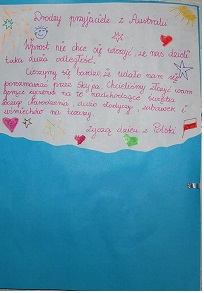 Drodzy przyjaciele z Australii
Wprost nie chce się wierzyć, że nas dzieli
taka duża odległość.
Cieszymy się bardzo, że udało nam się
porozmawiać przez Skypa. Chcieliśmy złożyć wam
życzenia na te nadchodzące święta
Bożego Narodzenia, dużo słodyczy, zabawek i
uśmiechów na twarzy.
Życzą dzieci z Polski